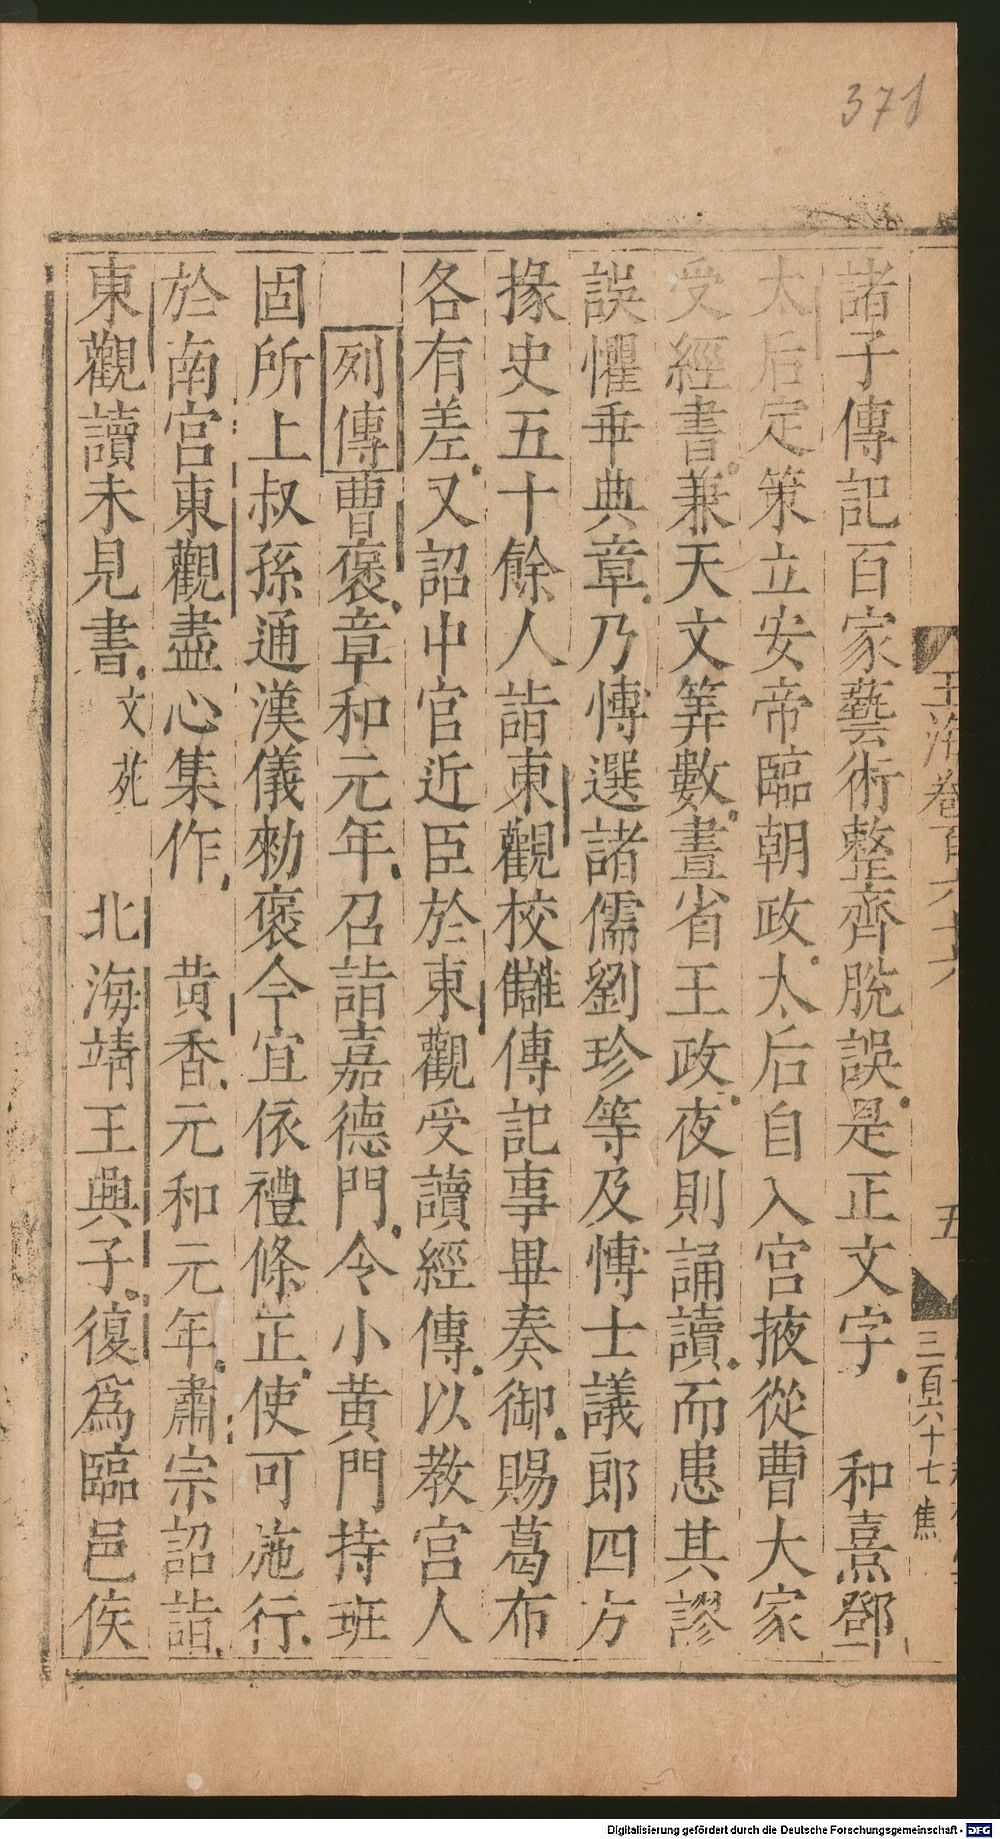 371
玉海卷百六十六
五
三百六十七 焦
諸子傳記百家藝術整齊脫誤是正文字 和熹鄧
太后定策立安帝臨朝政太后自入宮掖從曹大家
受經書兼天文筭數晝省王政夜則誦讀而患其謬
誤懼乖典章乃愽選諸儒劉珍等及愽士議郎四方
掾史五十餘人詣東觀校讎傳記事畢奏御賜葛布
各有差又詔中官近臣於東觀受讀經傳以教宮人
列傳曹褒章和元年召詣嘉德門令小黃門持班
固所上叔孫通漢儀勑褒今宜依禮條正使可施行
於南宮東觀盡心集作 黃香元和元年肅宗詔詣
東觀讀未見書文苑 北海靖王興子復爲臨邑侯
Digitalisierung gefördert durch die Deutsche Forschungsgemeinschaft - DFG